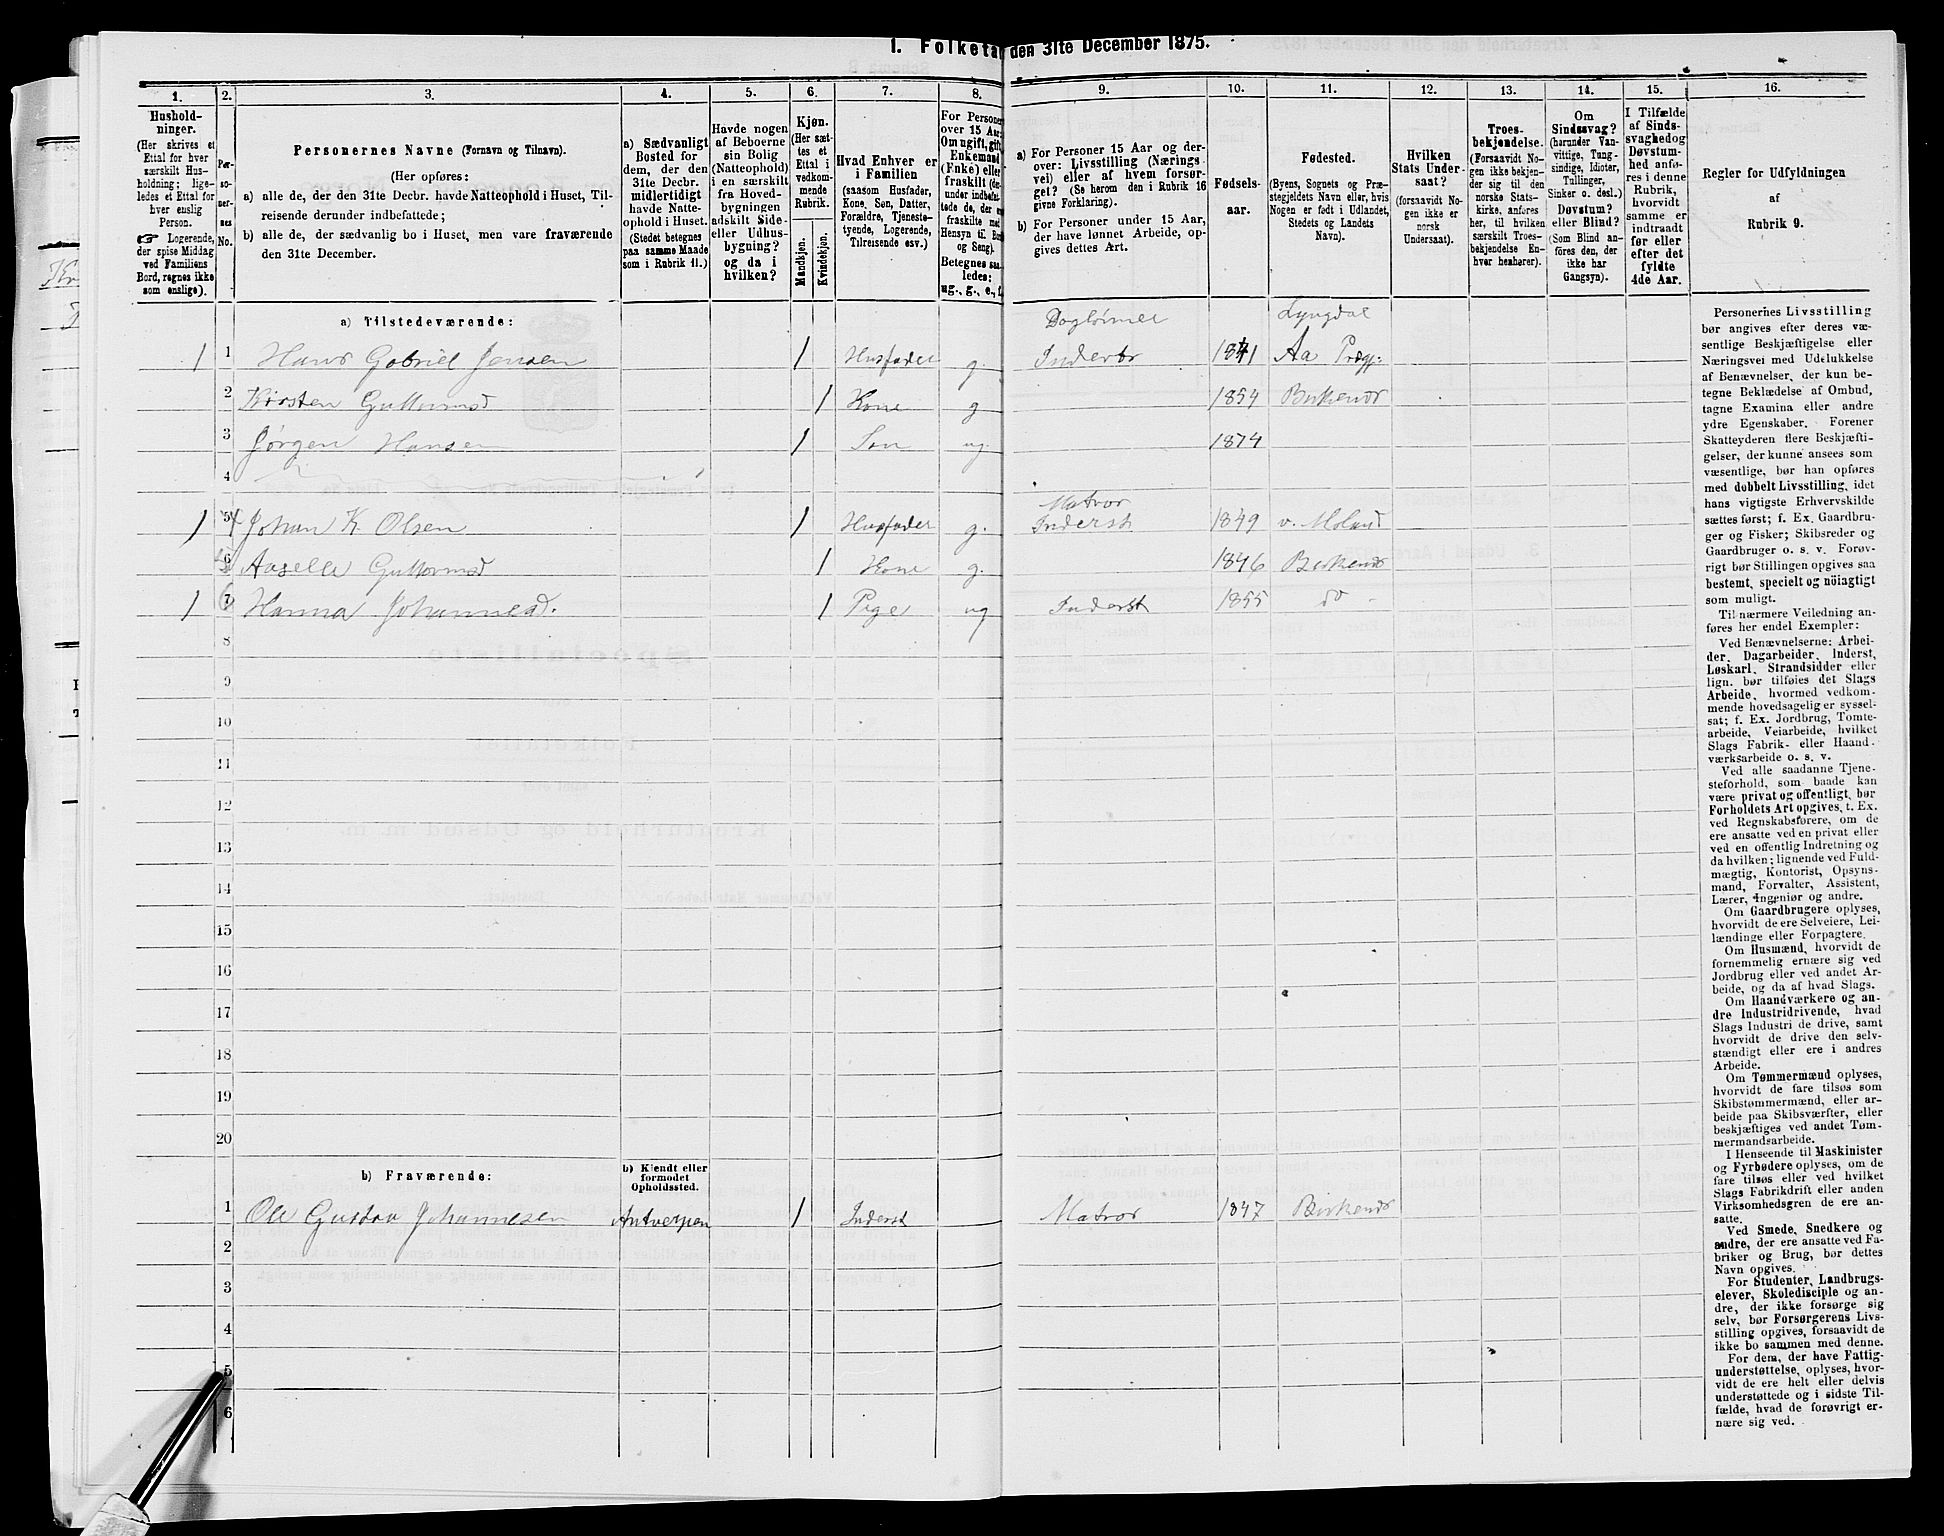 1. Folketa den 31te December 1875.
1. 2. 3. 4. 5. 6. 7. 8. 9. 10. 11. 12. 13. 14. 15. 16.
Hushold-
ninger.
(Her skrives et
Ettal for hver
særskilt Hus-
holdning; lige-
ledes et Ettal for
hver enslig
Person.
Logerende,
der spise Middag
ved Familiens
Bord, regnes ikke
som enslige).
Per-
so-
ner-
nes
No.
Personernes Navne (Fornavn og Tilnavn).
(Her opføres:
a) alle de, der den 31te Decbr. havde Natteophold i Huset, Til-
reisende derunder indbefattede;
b) alle de, der sædvanlig bo i Huset, men vare fraværende
den 31te December.
a) Sædvanligt
Bosted for
dem, der den
31te Decbr.
midlertidigt
havde Natte-
ophold i Huset.
(Stedet betegnes
paa samme Maade
som i Rubrik 11.)
Havde nogen
af Beboerne
sin Bolig
(Natteophold)
i en særskilt
fra Hoved-
bygningen
adskilt Side-
eller Udhus-
bygning?
og da i
hvilken?
Kjøn.
(Her sæt-
tes et
Ettal i
vedkom-
mende
Rubrik.
Mandkjøn.
Kvindekjøn.
Hvad Enhver er
i Familien
(saasom Husfader,
Kone, Søn, Datter,
Forældre, Tjeneste-
tyende, Logerende,
Tilreisende osv.)
For Personer
over 15 Aar:
Om ugift, gift,
Enkemand
(Enke) eller
fraskilt (de
under indbefat-
tede de, der er
fraskilte med
Hensyn til Bord
og Seng).
Betegnes saa-
ledes:
ug., g., e., f.
a) For Personer 15 Aar og der-
over: Livsstilling (Nærings
vei) eller af hvem forsør-
get? (Se herom den i Rubrik 16
givne Forklaring).
b) For Personer under 15 Aar,
der have lønnet Arbeide, op-
gives dettes Art.
Fødsels-
aar.
Fødested.
(Byens, Sognets og Præ-
stegjeldets Navn eller, hvis
Nogen er født i Udlandet,
Stedets og Landets
Navn).
Hvilken
Stats Under-
saat?
(forsaavidt No-
gen ikke er
norsk
Undersaat).
Troes-
bekjendelse.
(Forsaavidt No-
gen ikke bekjen-
der sig til den
norske Stats-
kirke, anføres
her, til hvilken
særskilt Troes-
bekjendelse En-
hver henhører).
Om
Sindssvag?
(harunder Van-
vittige, Tung-
sindige, Idioter,
Tullinger,
Sinker o. desl.)
Døvstum?
eller Blind?
(Som Blind an-
føres den, der
ikke har
Gangsyn).
I Tilfælde
af Sinds-
svaghed og
Døvstum-
hed anfø-
res i denne
Rubrik,
hvorvidt
samme er
indtraadt
før eller
efter det
fyldte
4de Aar.
Regler for Udfyldningen
af
Rubrik 9.
a) Tilstedeværende:
Dagleiner Lyngdal
1 1 Hans Gabriel Jensen 1 Husfader g. Inderst 1841 Aa Prægj:
2 Kirsten Guttormsd 1 Kone g 1854 Birkenes
3 Jørgen Hansen 1 Søn ug. 1874
4
Matros
1 5 4 Johan K. Olsen 1 Husfader g. Inderst 1849 v. Moland
6 5 Aaselle Guttormsd 1 Kone g. 1846 Birkenes
1 7 6 Hanna Johannesd. 1 Pige ug Inderst 1855 do
8
9
10
11
12
13
14
15
16
17
18
19
20
b) Fraværende:
b) Kjendt eller
formodet
Opholdssted.
1 Ole Gustav Johannesen Antverpen 1 Inderst Matros 1847 Birkenes
2
3
4
5
6
Personernes Livsstilling
bør angives efter deres væ-
sentlige Beskjæftigelse eller
Næringsvei med Udelukkelse
af Benævnelser, der kun be-
tegne Beklædelse af Ombud,
tagne Examina eller andre
ydre Egenskaber. Forener
Skatteyderen flere Beskjæfti-
gelser, der kunne ansees som
væsentlige, bør han opføres
med dobbelt Livsstilling, idet
hans vigtigste Erhvervskilde
sættes først; f. Ex. Gaardbru-
ger og Fisker; Skibsreder og
Gaardbruger o. s. v. Forøv-
rigt bør Stillingen opgives saa
bestemt, specielt og nöiagtigt
som muligt.
Til nærmere Veiledning an-
føres her endel Exempler:
Ved Benævnelserne: Arbei-
der, Dagarbeider, Inderst,
Løskarl, Strandsidder eller
lign. bør tilføies det Slags
Arbeide, hvormed vedkom-
mende hovedsagelig er syssel-
sat; f. Ex. Jordbrug, Tomte-
arbeide, Veiarbeide, hvilket
Slags Fabrik- eller Haand-
værksarbeide o. s. v.
Ved alle saadanne Tjene-
steforhold, som baade kan
være privat og offentligt, bør
Forholdets Art opgives, t. Ex.
ved Regnskabsførere, om de
ere ansatte ved en privat eller
ved en offentlig Indretning og
da hvilken; lignende ved Fuld-
mægtig, Kontorist, Opsyns-
mand, Forvalter, Assistent,
Lærer, Ingeniør og andre.
Om Gaardbrugere oplyses,
hvorvidt de ere Selveiere, Lei-
lændinge eller Forpagtere.
Om Husmænd, hvorvidt de
fornemmelig ernære sig ved
Jordbrug eller ved andet Ar-
beide, og da af hvad Slags.
Om Haandværkere og an-
dre Industridrivende, hvad
Slags Industri de drive, samt
hvorvidt de drive den selv-
stændigt eller ere i andres
Arbeide.
Om Tømmermænd oplyses,
hvorvidt de fare tilsøs som
Skibstømmermænd, eller ar-
beide paa Skibsværfter, eller
beskjæftiges ved andet Tøm-
mermandsarbeide.
I Henseende til Maskinister
og Fyrbødere oplyses, om de
fare tilsøs eller ved hvilket
Slags Fabrikdrift eller anden
Virksomhedsgren de ere an-
satte.
Ved Smede, Snedkere og
andre, der ere ansatte ved Fa-
briker og Brug, bør dettes
Navn opgives.
For Studenter, Landbrugs-
elever, Skoledisciple og an-
dre, der ikke forsørge sig
selv, bør Forsørgerens Livs-
stilling opgives, forsaavidt de
ikke bo sammen med denne.
For dem, der have Fattig-
understøttelse, oplyses, hvor-
vidt de ere helt eller delvis
understøttede og i sidste Til-
fælde, hvad de forøvrigt er-
nære sig ved.